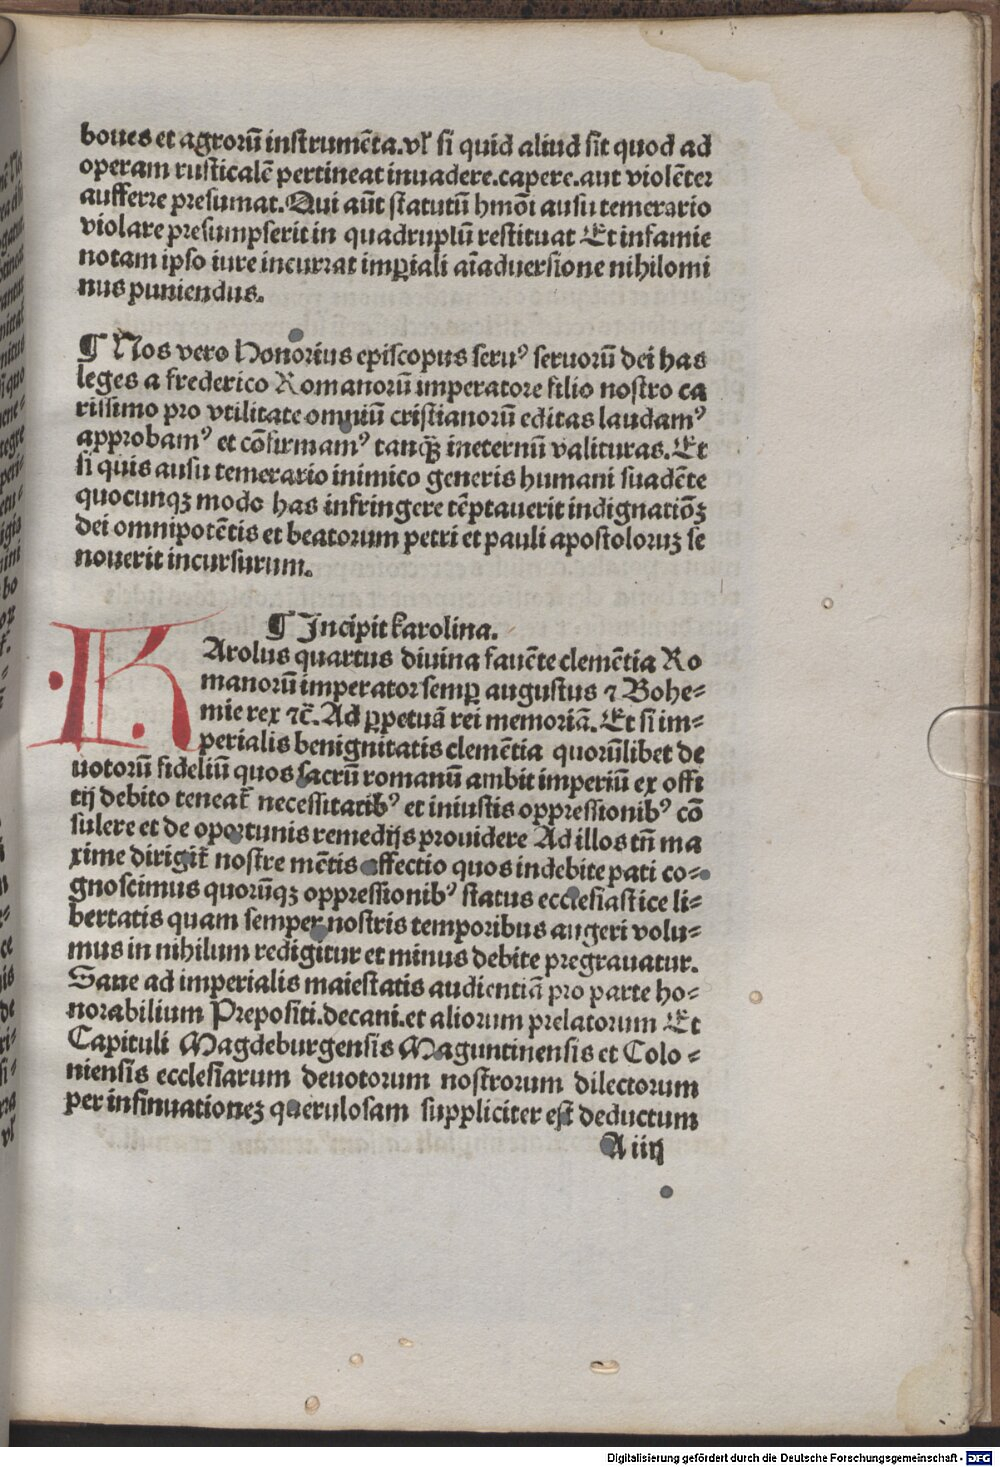 boues et agrorū instrumēta. vł si quid aliud sit quod ad
operam rusticalē pertineat inuadere. capere. aut violēter
aufferre presumat. Qui aūt statutū hmōi ausu temerario
violare presumpserit in quadruplū restituat Et infamie
notam ipso iure incurrat imꝑiali aīaduersione nihilomi
nus puniendus.
¶ Nos vero Honorius episcopus seruꝰ seruorū dei has
leges a frederico Romanorū imperatore filio nostro ca
rissimo pro vtilitate omniū cristianorū editas laudamꝰ
approbamꝰ et cōfirmamꝰ tanqꝫ ineternū valituras. Et
si quis ausu temerario inimico generis humani suadēte
quocunqꝫ modo has infringere tēptauerit indignatiōꝫ
dei omnipotētis et beatorum petri et pauli apostoloruꝫ se
nouerit incursurum.
¶ Incipit karolina.
KArolus quartus diuina fauēte clemētia Ro
manorū imperator semꝑ augustus ⁊ Bohe⸗
mie rex ⁊c̄. Ad ꝑpetuā rei memoriā. Et si im⸗
perialis benignitatis clemētia quorūlibet de
uotorū fideliū quos sacrū romanū ambit imperiū ex offi
tij debito teneat̄ necessitatibꝰ et iniustis oppressionibꝰ cō
sulere et de oportunis remedijs prouidere Ad illos tn̄ ma
xime dirigit̄ nostre mētis affectio quos indebite pati co⸗
gnoscimus quorūqꝫ oppressionibꝰ status ecclesiastice li⸗
bertatis quam semper nostris temporibus augeri volu⸗
mus in nihilum redigitur et minus debite pregrauatur.
Sane ad imperialis maiestatis audientiā pro parte ho⸗
norabilium Prepositi. decani. et aliorum prelatorum Et
Capituli Magdeburgensis Maguntinensis et Colo⸗
niensis ecclesiarum deuotorum nostrorum dilectorum
per insinuationeꝫ querulosam suppliciter est deductum
A iiij
Digitalisierung gefördert durch die Deutsche Forschungsgemeinschaft - DFG